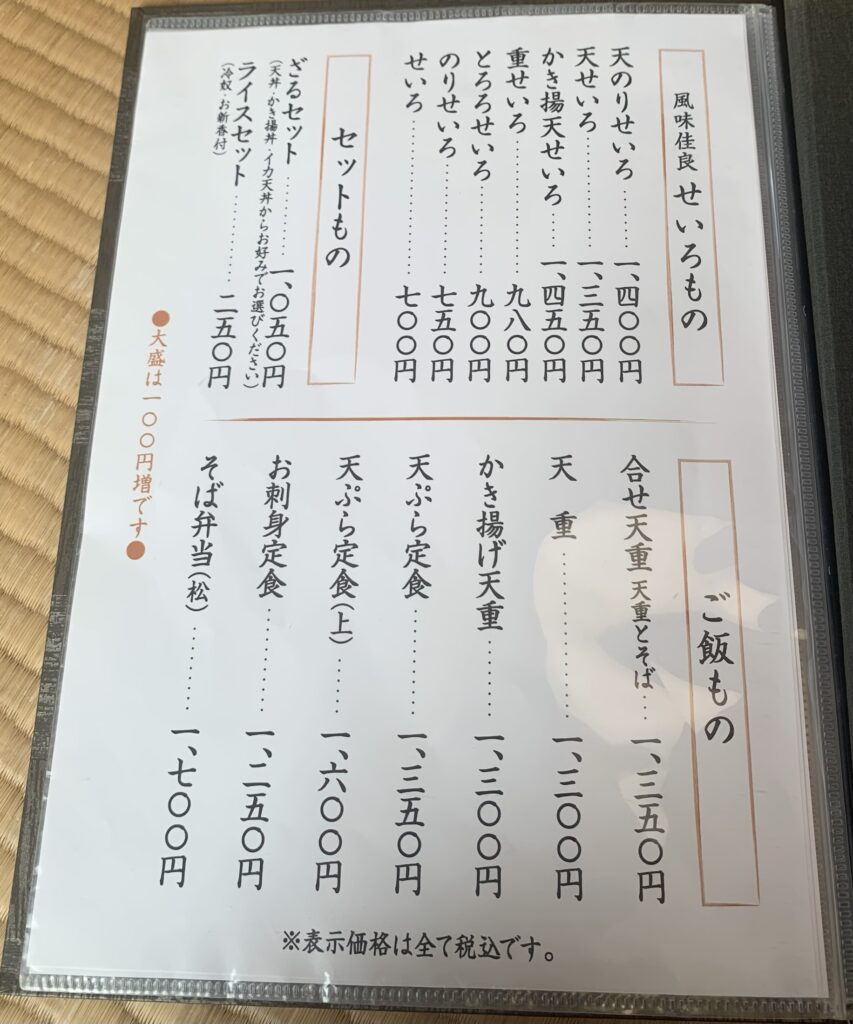 風味佳良 せいろもの
天のりせいろ………一、四〇〇円
天せいろ…………一、三五〇円
かき揚天せいろ……一、四五〇円
重せいろ……………九八〇円
とろろせいろ…………九〇〇円
のりせいろ……………七五〇円
せいろ………………七〇〇円
セットもの
ざるセット…………一、〇五〇円
(天丼・かき揚丼・イカ天丼からお好みでお選びください)
ライスセット…………二五〇円
(冷奴・お新香付)
ご飯もの
合せ天重 天重とそば…一、三五〇円
天 重………………一、三〇〇円
かき揚げ天重………一、三〇〇円
天ぷら定食…………一、三五〇円
天ぷら定食(上)……一、六〇〇円
お刺身定食…………一、二五〇円
そば弁当(松)………一、七〇〇円
●大盛は一〇〇円増です●
※表示価格は全て税込です。